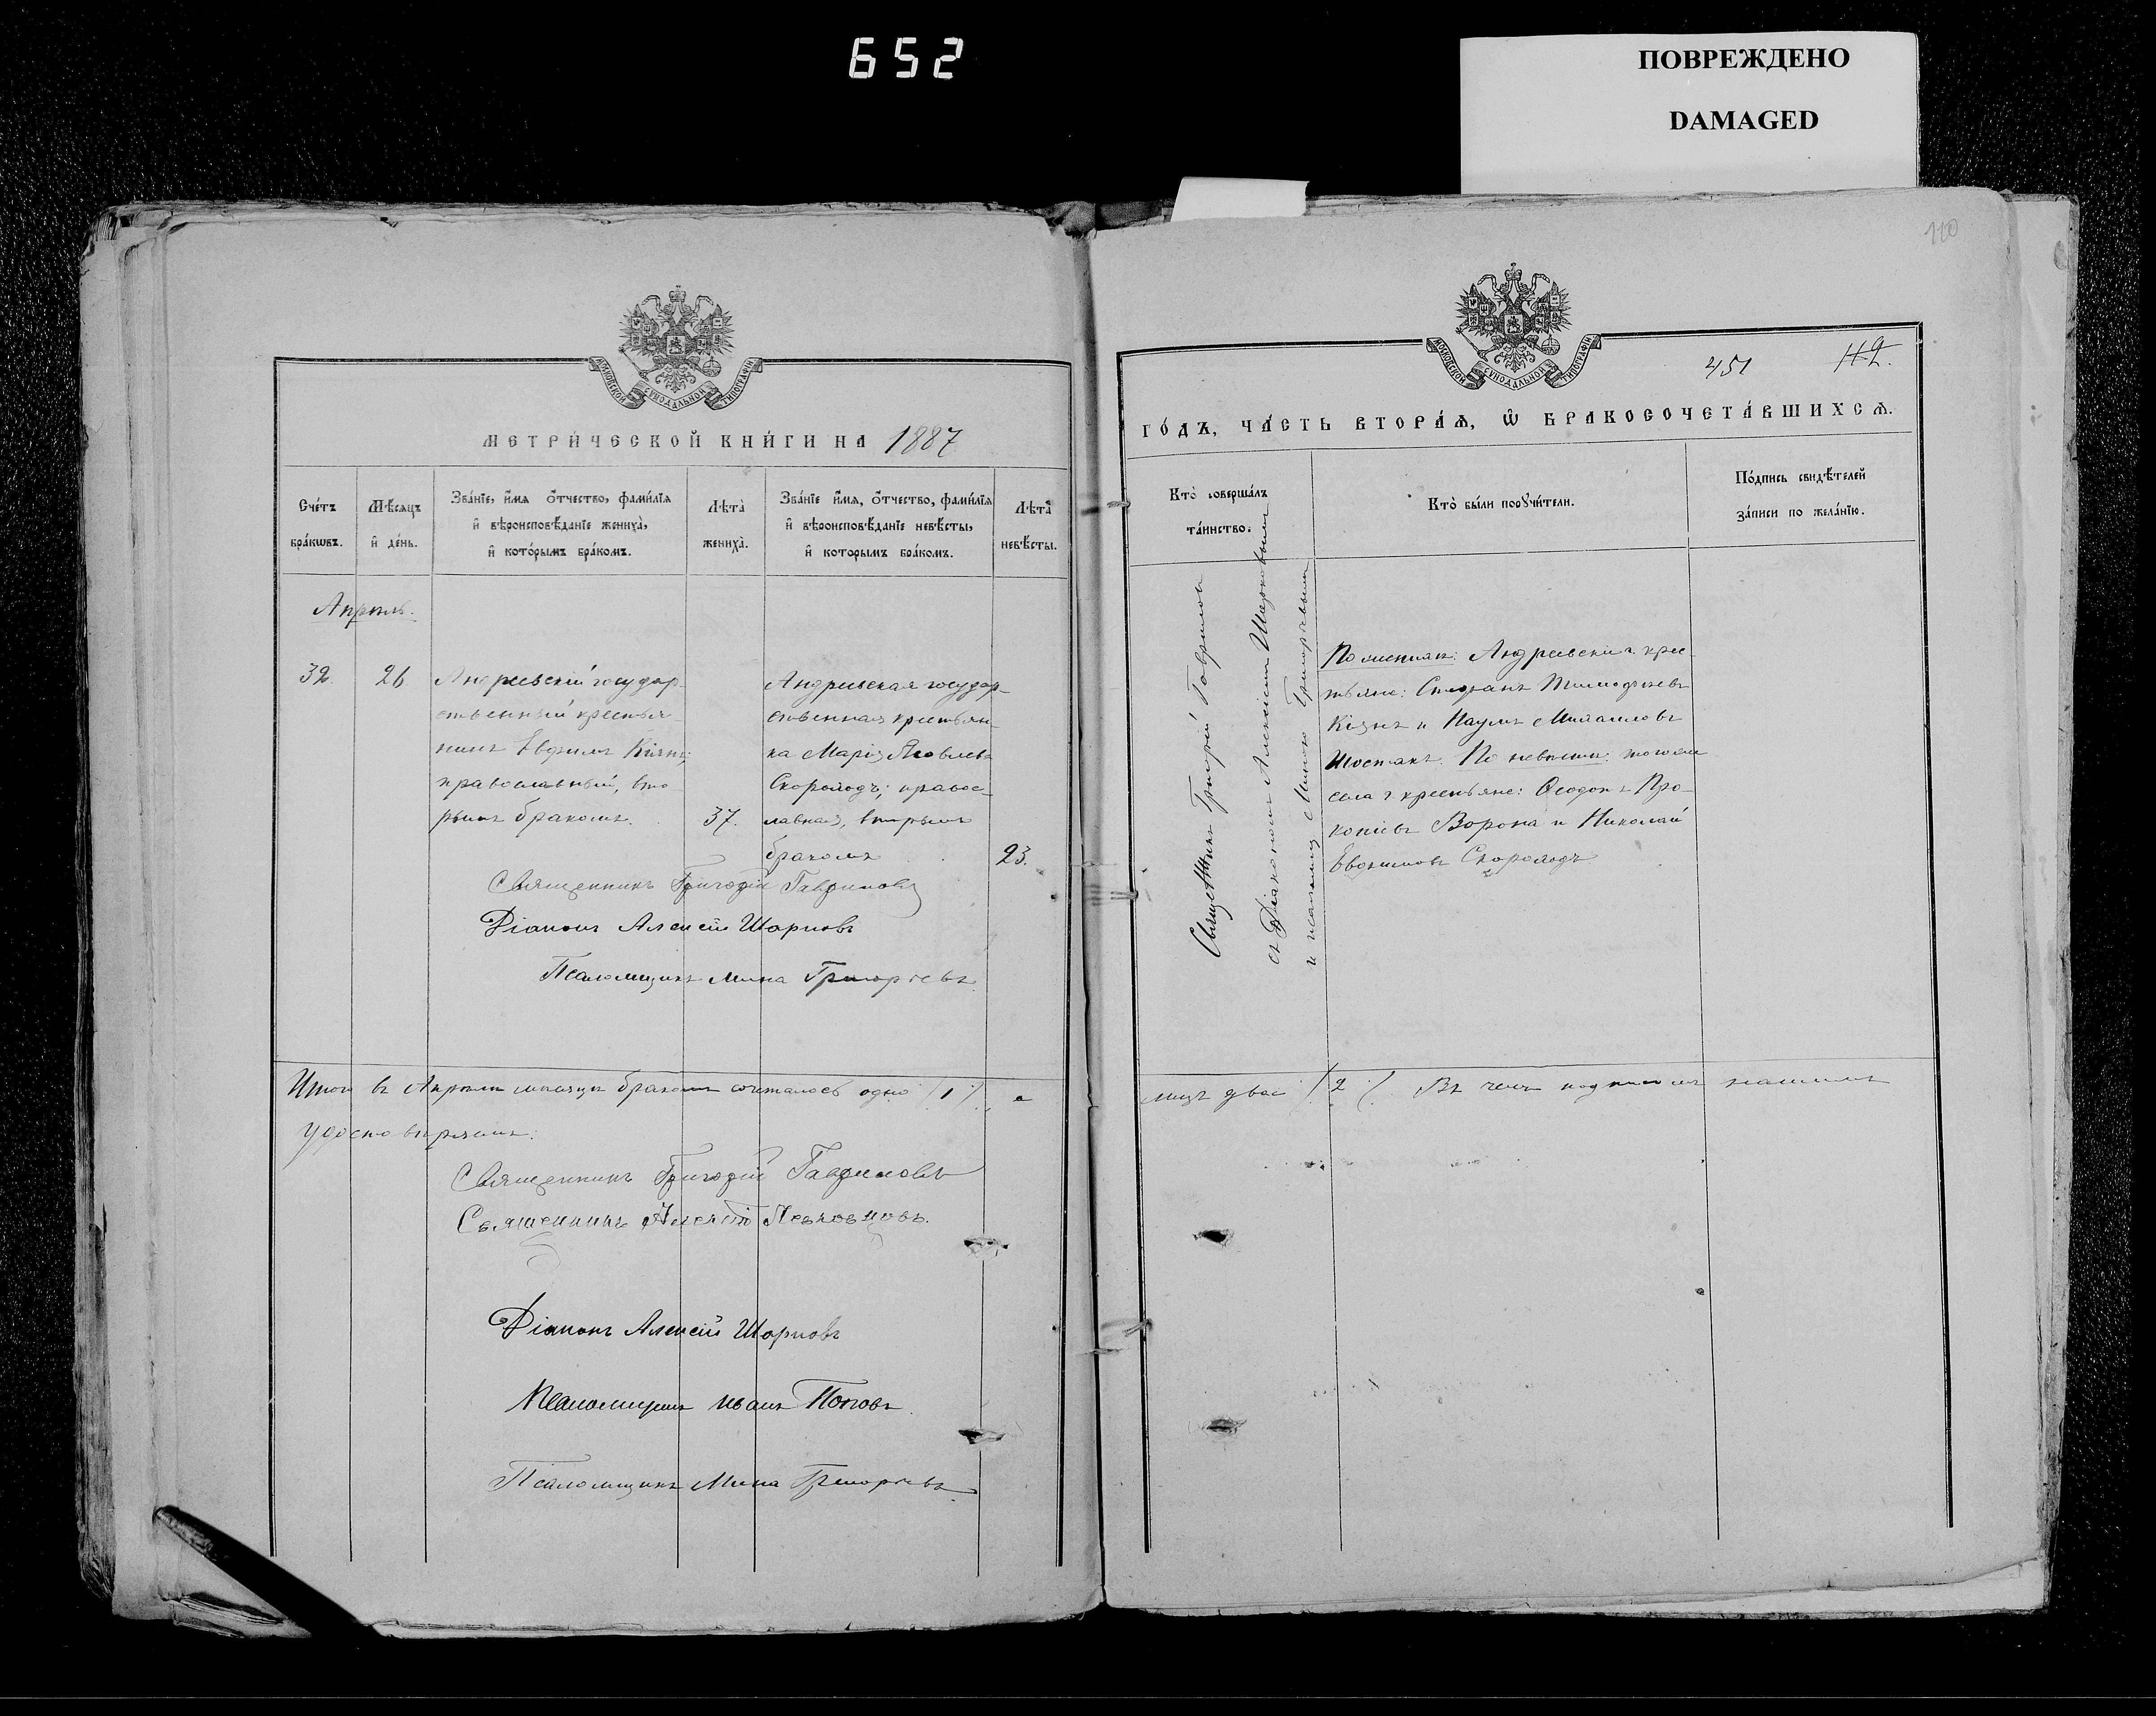 652
ПОВРЕЖДЕНО
DAMAGED
110
МОСКОВСКОЙ СѴНОДАЛЬНОЙ ТИПОГРАФІИ
МЕТРИ́ЧЕСКОЙ КНИ́ГИ НА 1887
Сче́тъ бра́кѡвъ.
Мѣ́сяцъ и҆ де́нь.
Зва́нїе, и҆́мя ѻ҆́тчество, фами́лїя
и҆ вѣроисповѣ́данїе жениха̀,
и҆ кото́рымъ бра́комъ.
Лѣта̀ жениха̀.
Зва́нїе и҆́мя, ѻ҆́тчество, фами́лїя
и҆ вѣроисповѣ́данїе невѣ́сты,
и҆ которымъ бра́комъ.
Лѣта̀ невѣ́сты.
Апрѣль.
32.
26
Андреевскій государ-
ственный крестья-
нинъ Евфимъ Кіянъ;
православный, вто-
рымъ бракомъ.
37.
Андреевская государ-
ственная крестьян-
ка Марія Яковлева
Скороходъ; правос-
лавная, вторымъ
бракомъ
23.
Священникъ Григорій Гавриловъ
Діаконъ Алексій Шарковъ
Псаломщикъ Мина Григорьевъ.
Итого въ Апрѣлѣ мѣсяцѣ бракомъ сочеталось одно /1/, а
удостовѣряемъ:
Священникъ Григорій Гавриловъ
Священникъ Алексій
Діаконъ Алексій Шарковъ
Псаломщикъ Иванъ Поповъ.
Псаломщикъ Мина Григорьевъ.
МОСКОВСКОЙ СѴНОДАЛЬНОЙ ТИПОГРАФІИ
451
112.
ГО́ДЪ, ЧА́СТЬ ВТОРА́Ѧ, Ѡ҆ БРАКОСОЧЕТА́ВШИХСѦ.
Кто̀ соверша́лъ
та́инство.
Кто̀ бы́ли порꙋчи́тели.
По́дпись свидѣ́телей
за́писи по жела́нїю.
Священникъ Григорій Гавриловъ
съ Діакономъ Алексіемъ Шарковымъ
и псаломщ. Миною Григорьевымъ
По женихѣ: Андреевскіе г. крес-
тьяне: Стефанъ Тимофѣевъ
Кіянъ и Наумъ Михаиловъ
Шостакъ. По невѣстѣ: того же
села г. крестьяне: Ѳеодоръ Про-
копіевъ Ворона и Николай
Евфимовъ Скороходъ
лицъ двое /2/. Въ чемъ подписомъ нашимъ